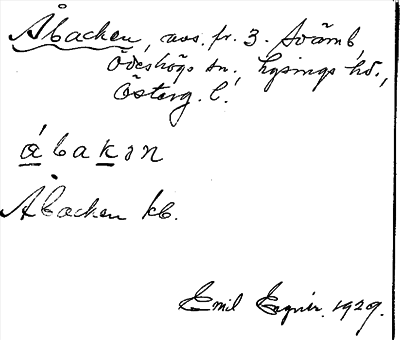 Åbacken, avs. fr. 3. Svämb,
Ödeshögs sn., Lysings hd.,
Österg. l.
ábakən
Åbacken kb.
Emil Egnér. 1929.